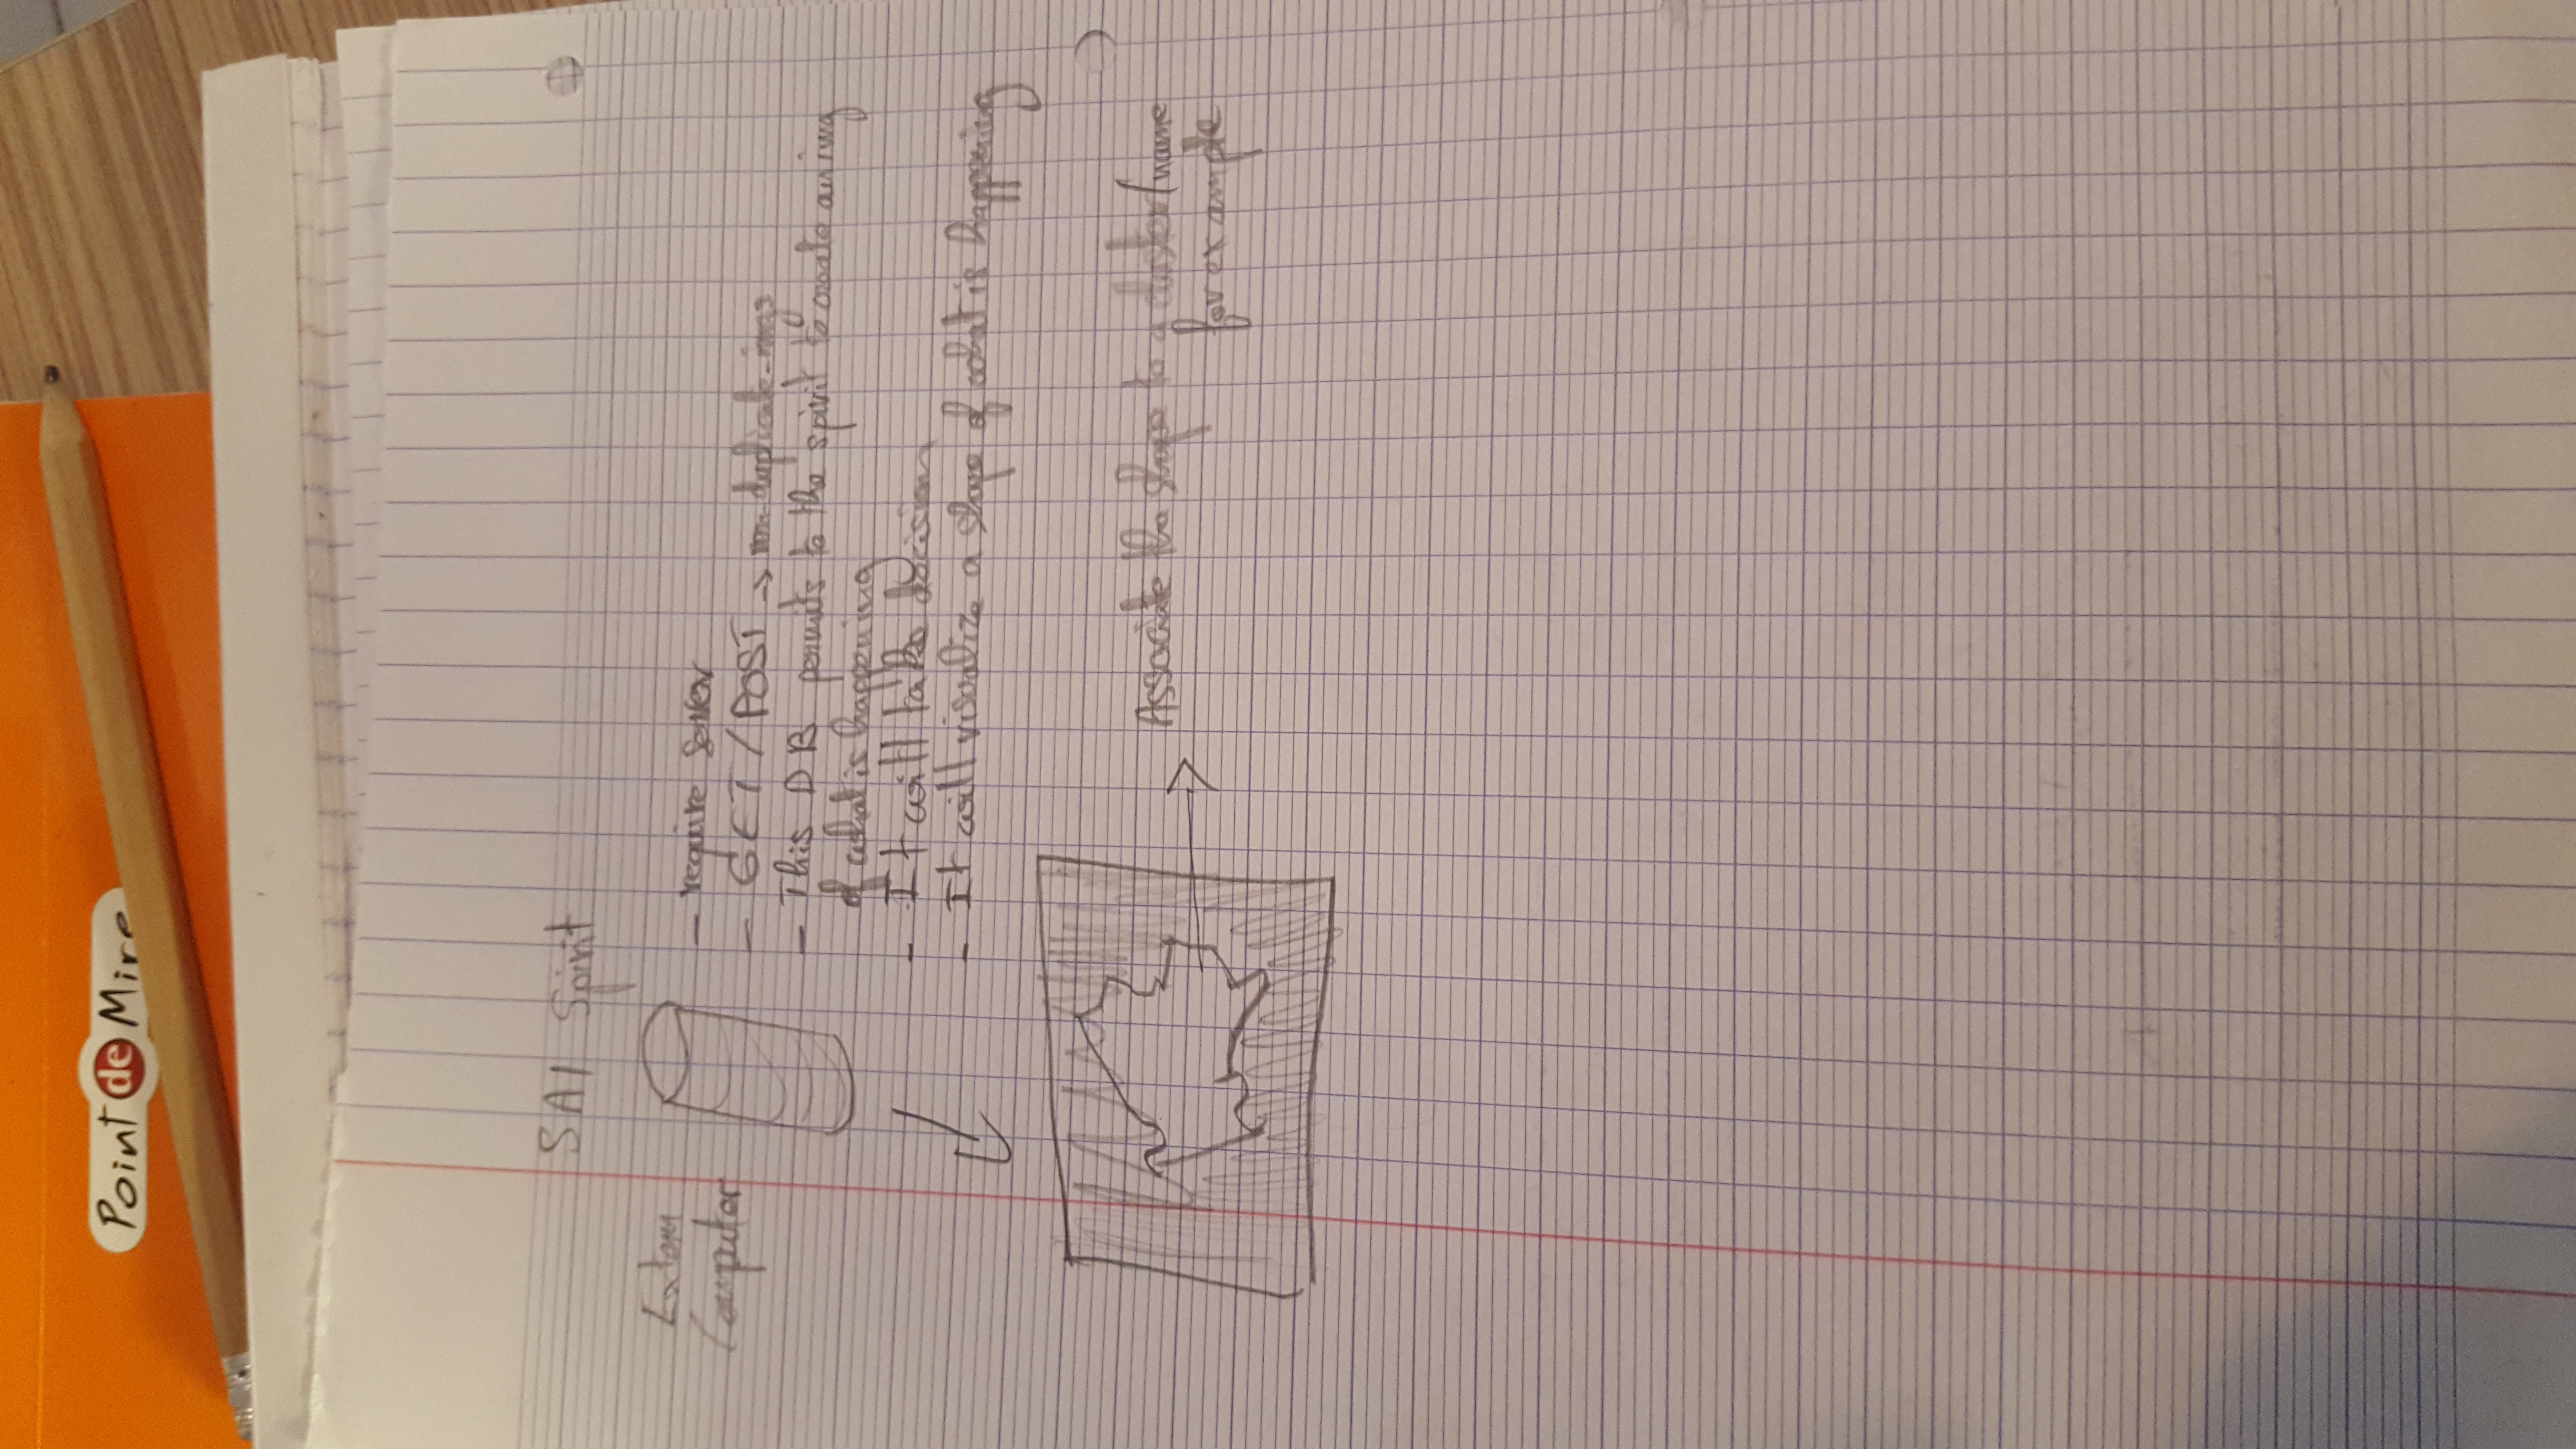 Point de Mire
SAI Spirit
Extern
Computer
- require server
- GET / POST → duplicate
- This DB permits to the spirit to create an img
of what is happening
- It will take decision
- It will visualize a shape of what is happening
Associate the shape to a cluster/name
for example